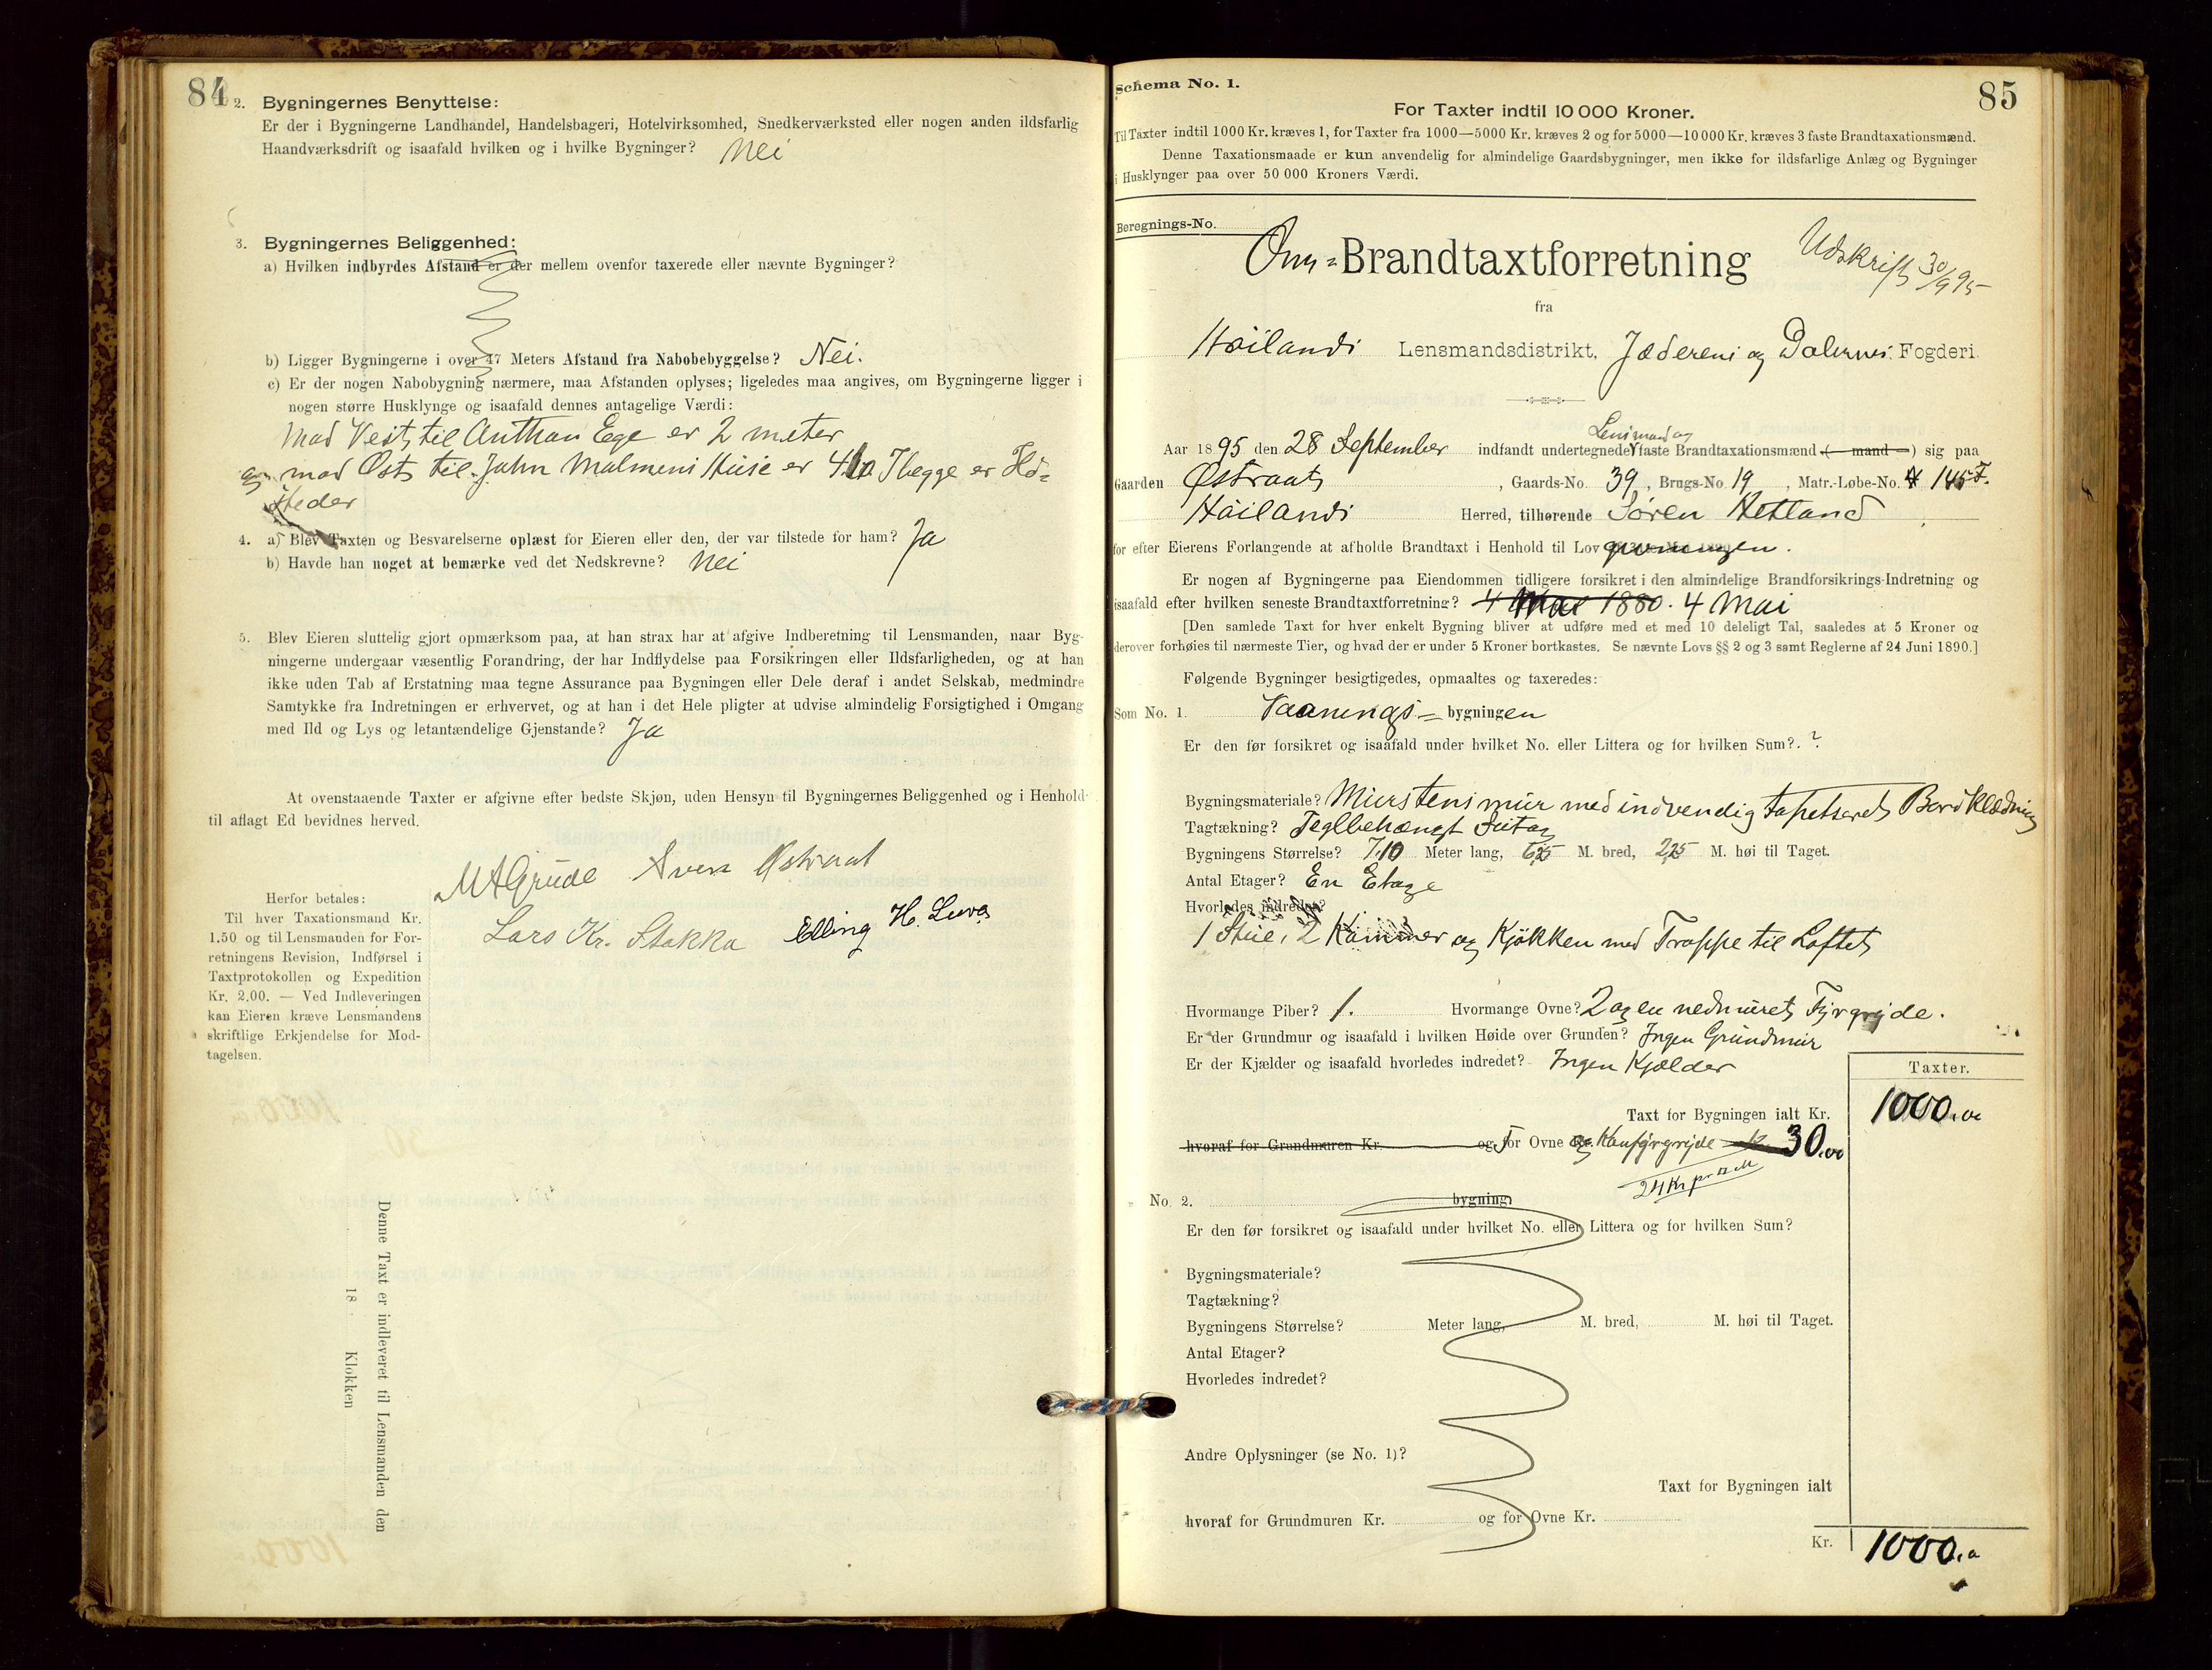 84
2. Bygningernes Benyttelse:
Er der i Bygningerne Landhandel, Handelsbageri, Hotelvirksomhed, Snedkerværksted eller nogen anden ildsfarlig
Haandværksdrift og isaafald hvilken og i hvilke Bygninger? Nei
3. Bygningernes Beliggenhed:
a) Hvilken indbyrdes Afstand er der mellem ovenfor taxerede eller nævnte Bygninger?
b) Ligger Bygningerne i over 47 Meters Afstand fra Nabobebyggelse? Nei.
c) Er der nogen Nabobygning nærmere, maa Afstanden oplyses; ligeledes maa angives, om Bygningerne ligger i
nogen større Husklynge og isaafald dennes antagelige Værdi:
Mod Vest, til Anthon Ege er 2 meter
og mod Øst til John Malmens Huse er 4
steder
4. a) Blev Taxten og Besvarelserne oplæst for Eieren eller den, der var tilstede for ham? Ja
b) Havde han noget at bemærke ved det Nedskrevne? Nei
5. Blev Eieren sluttelig gjort opmærksom paa, at han strax har at afgive Indberetning til Lensmanden, naar Byg-
ningerne undergaar væsentlig Forandring, der har Indflydelse paa Forsikringen eller Ildsfarligheden, og at han
ikke uden Tab af Erstatning maa tegne Assurance paa Bygningen eller Dele deraf i andet Selskab, medmindre
Samtykke fra Indretningen er erhvervet, og at han i det Hele pligter at udvise almindelig Forsigtighed i Omgang
med Ild og Lys og letantændelige Gjenstande? Ja
At ovenstaaende Taxter er afgivne efter bedste Skjøn, uden Hensyn til Bygningernes Beliggenhed og i Henhold
til aflagt Ed bevidnes herved.
M A Grude Sven Østraat
Lars Kr. Stokka Elling H. Lura
Herfor betales:
Til hver Taxationsmand Kr.
1.50 og til Lensmanden for For-
retningens Revision, Indførsel i
Taxtprotokollen og Expedition
Kr. 2.00. — Ved Indleveringen
kan Eieren kræve Lensmandens
skriftlige Erkjendelse for Mod-
tagelsen.
Denne Taxt er indleveret til Lensmanden den
18 Klokken
Schema No. 1.
85
For Taxter indtil 10 000 Kroner.
Til Taxter indtil 1000 Kr. kræves 1, for Taxter fra 1000—5000 Kr. kræves 2 og for 5000—10 000 Kr. kræves 3 faste Brandtaxationsmænd.
Denne Taxationsmaade er kun anvendelig for almindelige Gaardsbygninger, men ikke for ildsfarlige Anlæg og Bygninger
i Husklynger paa over 50 000 Kroners Værdi.
Beregnings-No.
Om=Brandtaxtforretning
Udskrift 30/9 95
fra
Høilands Lensmandsdistrikt, Jæderens og Dalernes Fogderi.
Lensmand og
Aar 1895 den 28 September indfandt undertegnede faste Brandtaxationsmænd (— mand —) sig paa
Gaarden Østraat, Gaards-No. 39, Brugs-No. 19, Matr.-Løbe-No. 145 F.
Høilands Herred, tilhørende Søren Hetland
for efter Eierens Forlangende at afholde Brandtaxt i Henhold til Lovgivningen.
Er nogen af Bygningerne paa Eiendommen tidligere forsikret i den almindelige Brandforsikrings-Indretning og
isaafald efter hvilken seneste Brandtaxtforretning? 4 Mai 1880. 4 Mai
[Den samlede Taxt for hver enkelt Bygning bliver at udføre med et med 10 deleligt Tal, saaledes at 5 Kroner og
derover forhøies til nærmeste Tier, og hvad der er under 5 Kroner bortkastes. Se nævnte Lovs §§ 2 og 3 samt Reglerne af 24 Juni 1890.]
Følgende Bygninger besigtigedes, opmaaltes og taxeredes:
Som No. 1. Vaanings=bygningen
Er den før forsikret og isaafald under hvilket No. eller Littera og for hvilken Sum? ?
Bygningsmateriale? Murstensmur med indvendig tapetseret Bordklædning
Tagtækning? Teglbehængt Sutag
Bygningens Størrelse? 7,10 Meter lang, 6,25 M. bred, 2,25 M. høi til Taget.
Antal Etager? En Etage
Hvorledes indredet?
1 Stue, 2 Kammer og Kjøkken med Trappe til Loftet
Hvormange Piber? 1. Hvormange Ovne? 2 og en nedmuret Fyrgryde.
Er der Grundmur og isaafald i hvilken Høide over Grunden? Ingen Grundmur
Er der Kjælder og isaafald hvorledes indredet? Ingen Kjælder
Taxter.
Taxt for Bygningen ialt Kr. 1000.00
hvoraf for Grundmuren Kr. og for Ovne og Komfyrgryde 30.00
24 Kr pr
No. 2. bygning.
Er den før forsikret og isaafald under hvilket No. eller Littera og for hvilken Sum?
Bygningsmateriale?
Tagtækning?
Bygningens Størrelse? Meter lang, M. bred, M. høi til Taget.
Antal Etager?
Hvorledes indredet?
Andre Oplysninger (se No. 1)?
Taxt for Bygningen ialt
hvoraf for Grundmuren Kr. og for Ovne Kr.
Kr. 1000.